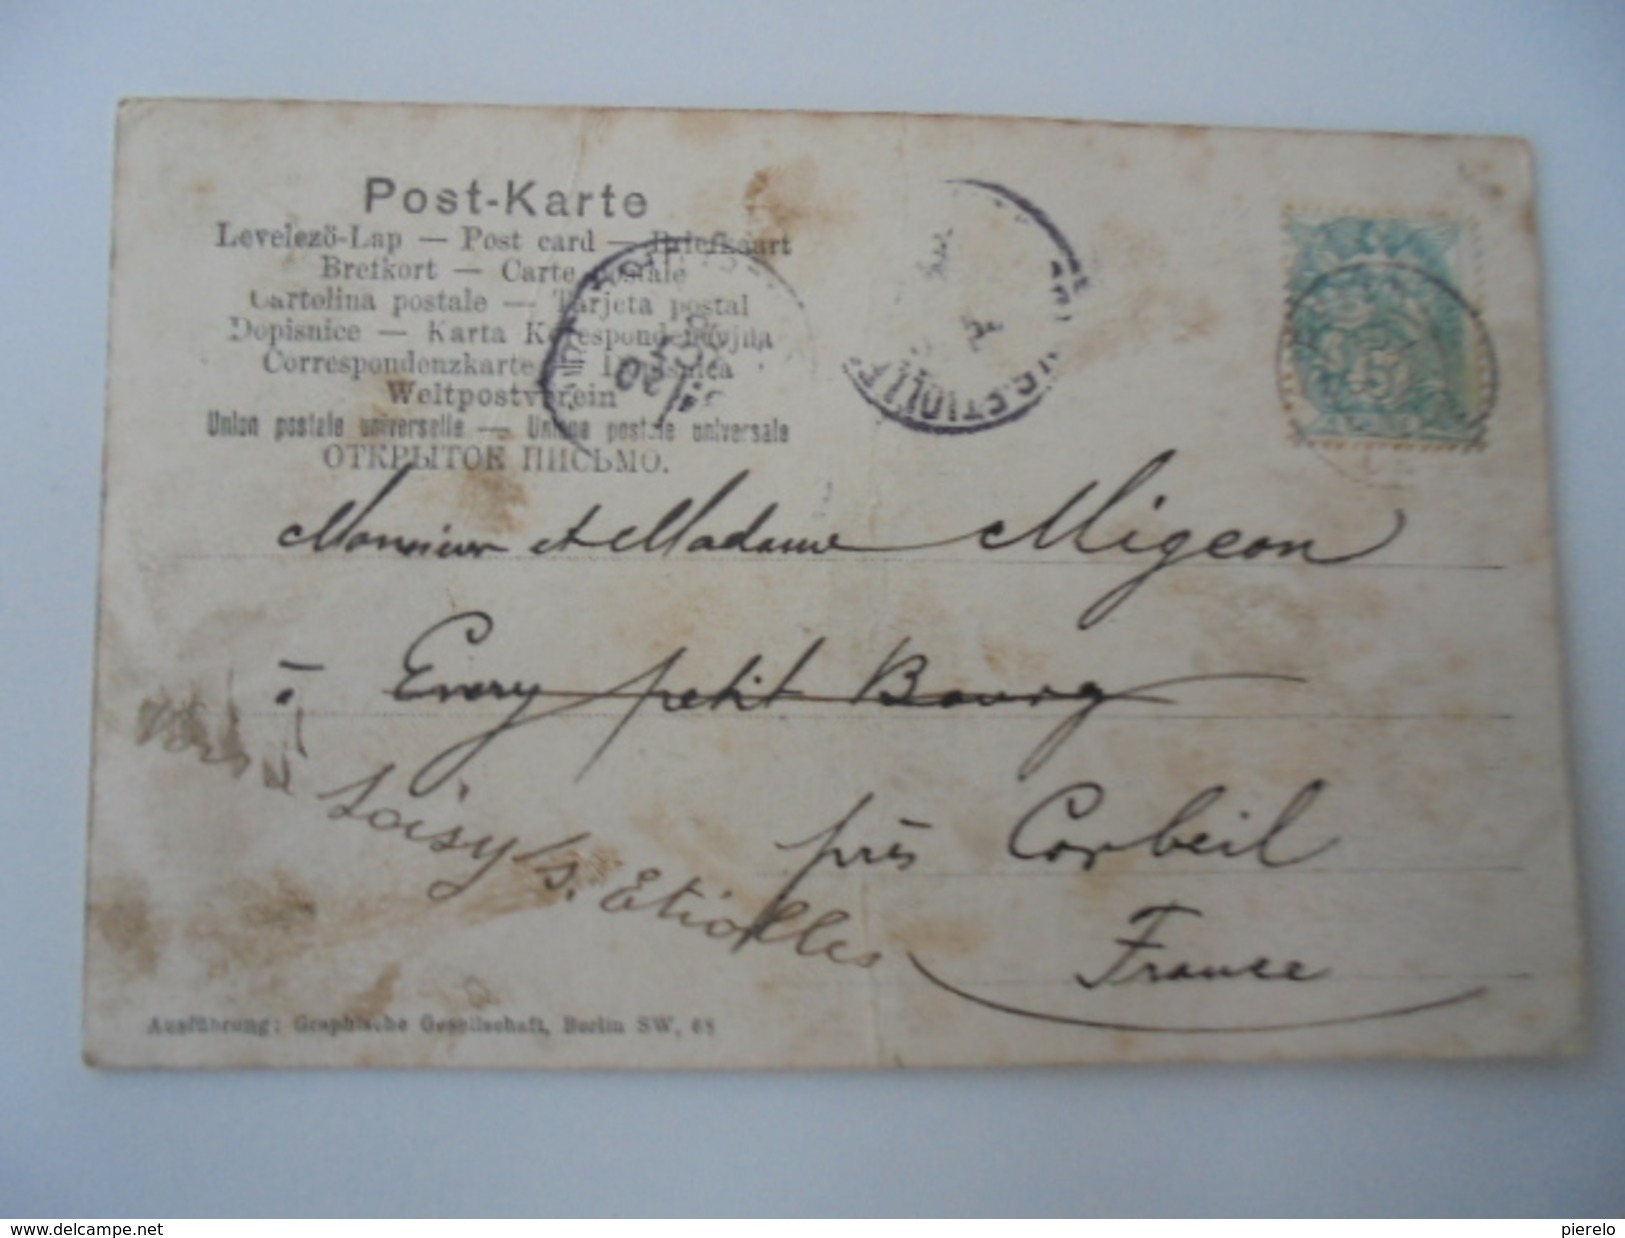 Post-Karte
Levelezö-Lap — Post card — Briefkaart
Brefkort — Carte postale
Cartolina postale — Tarjeta postal
Dopisnice — Karta Korespondencyjna
Correspondenzkarte —
Weltpostverein
Union postale universelle — Unione postale universale
ОТКРЫТОЕ ПИСЬМО.
Monsieur et Madame Migeon
à Evry petit Bourg
Soisy s. Etiolles
près Corbeil
France
Ausführung: Graphische Gesellschaft, Berlin SW, 68
www.delcampe.net
pierelo